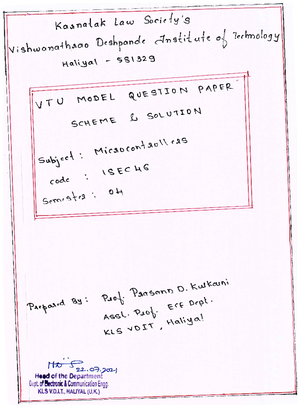 Karnatak Law Society's
Vishwanathrao Deshpande Institute of Technology
Haliyal - 581329
VTU MODEL QUESTION PAPER
SCHEME & SOLUTION
Subject : Microcontrollers
code : 18EC46
Semester : 04
Prepared By : Prof. Prasann D. Kulkarni
Asst. Prof. ECE Dept.
KLS VDIT, Haliyal
22.07.2021
Head of the Department
Dept. of Electronic & Communication Engg.
KLS V.D.I.T., HALIYAL (U.K.)